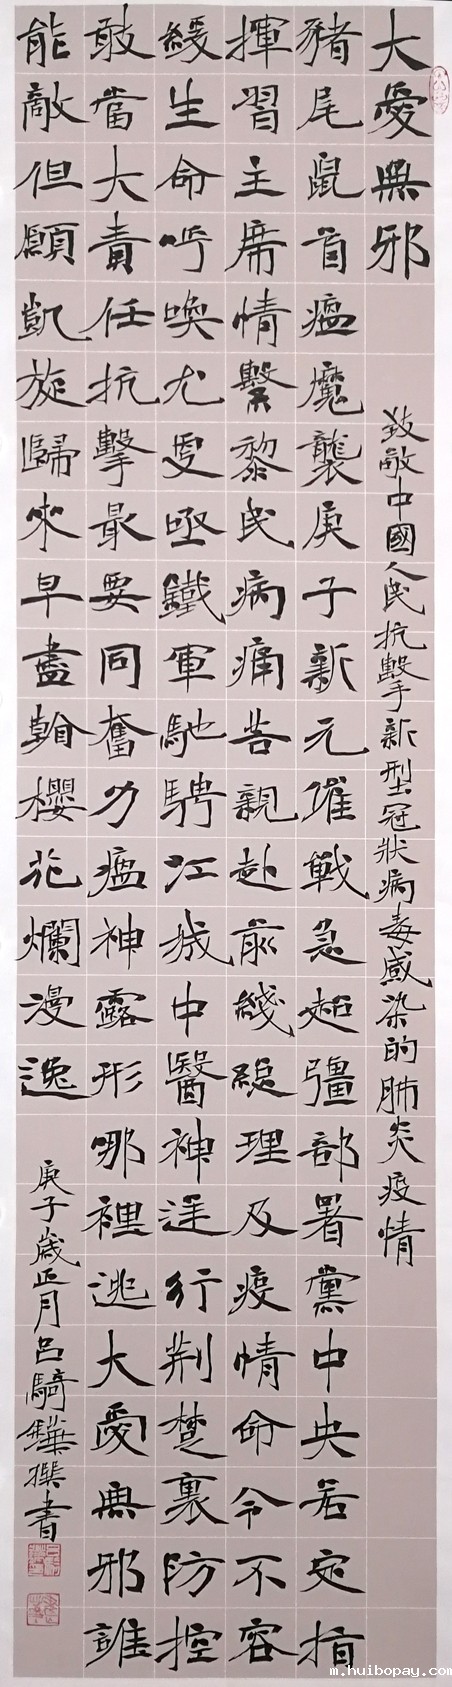 大愛無邪
致敬中國人民抗擊新型冠狀病毒感染的肺炎疫情
豬尾鼠首瘟魔襲庚子新元催戰急超彊部署黨中央若定指
揮習主席情繫黎民病痛苦親赴前綫總理及疫情命令不容
緩生命呼喚尤亟鐵軍馳騁江城中醫神行荆楚裏防控
敢當大責任抗擊最要同奮力瘟神露形哪裡逃大愛無邪誰
能敵但願凱旋歸來早盡翰櫻花爛漫逸
庚子歲正月呂騎鏵撰書
m.huibopay.com